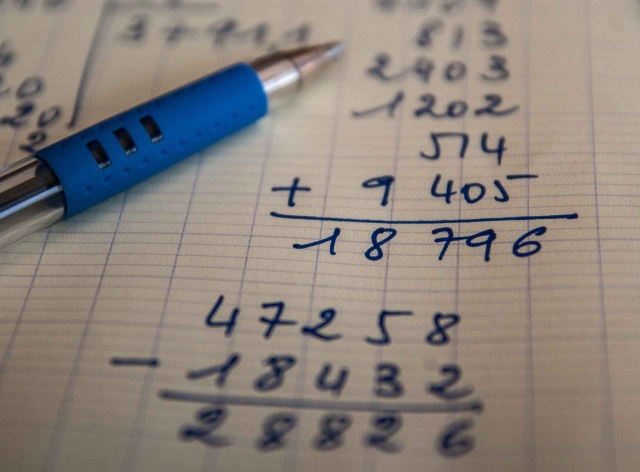 813
2403
20
1202
20
2
514
+ 9 405
18 796
47258
- 18432
28826